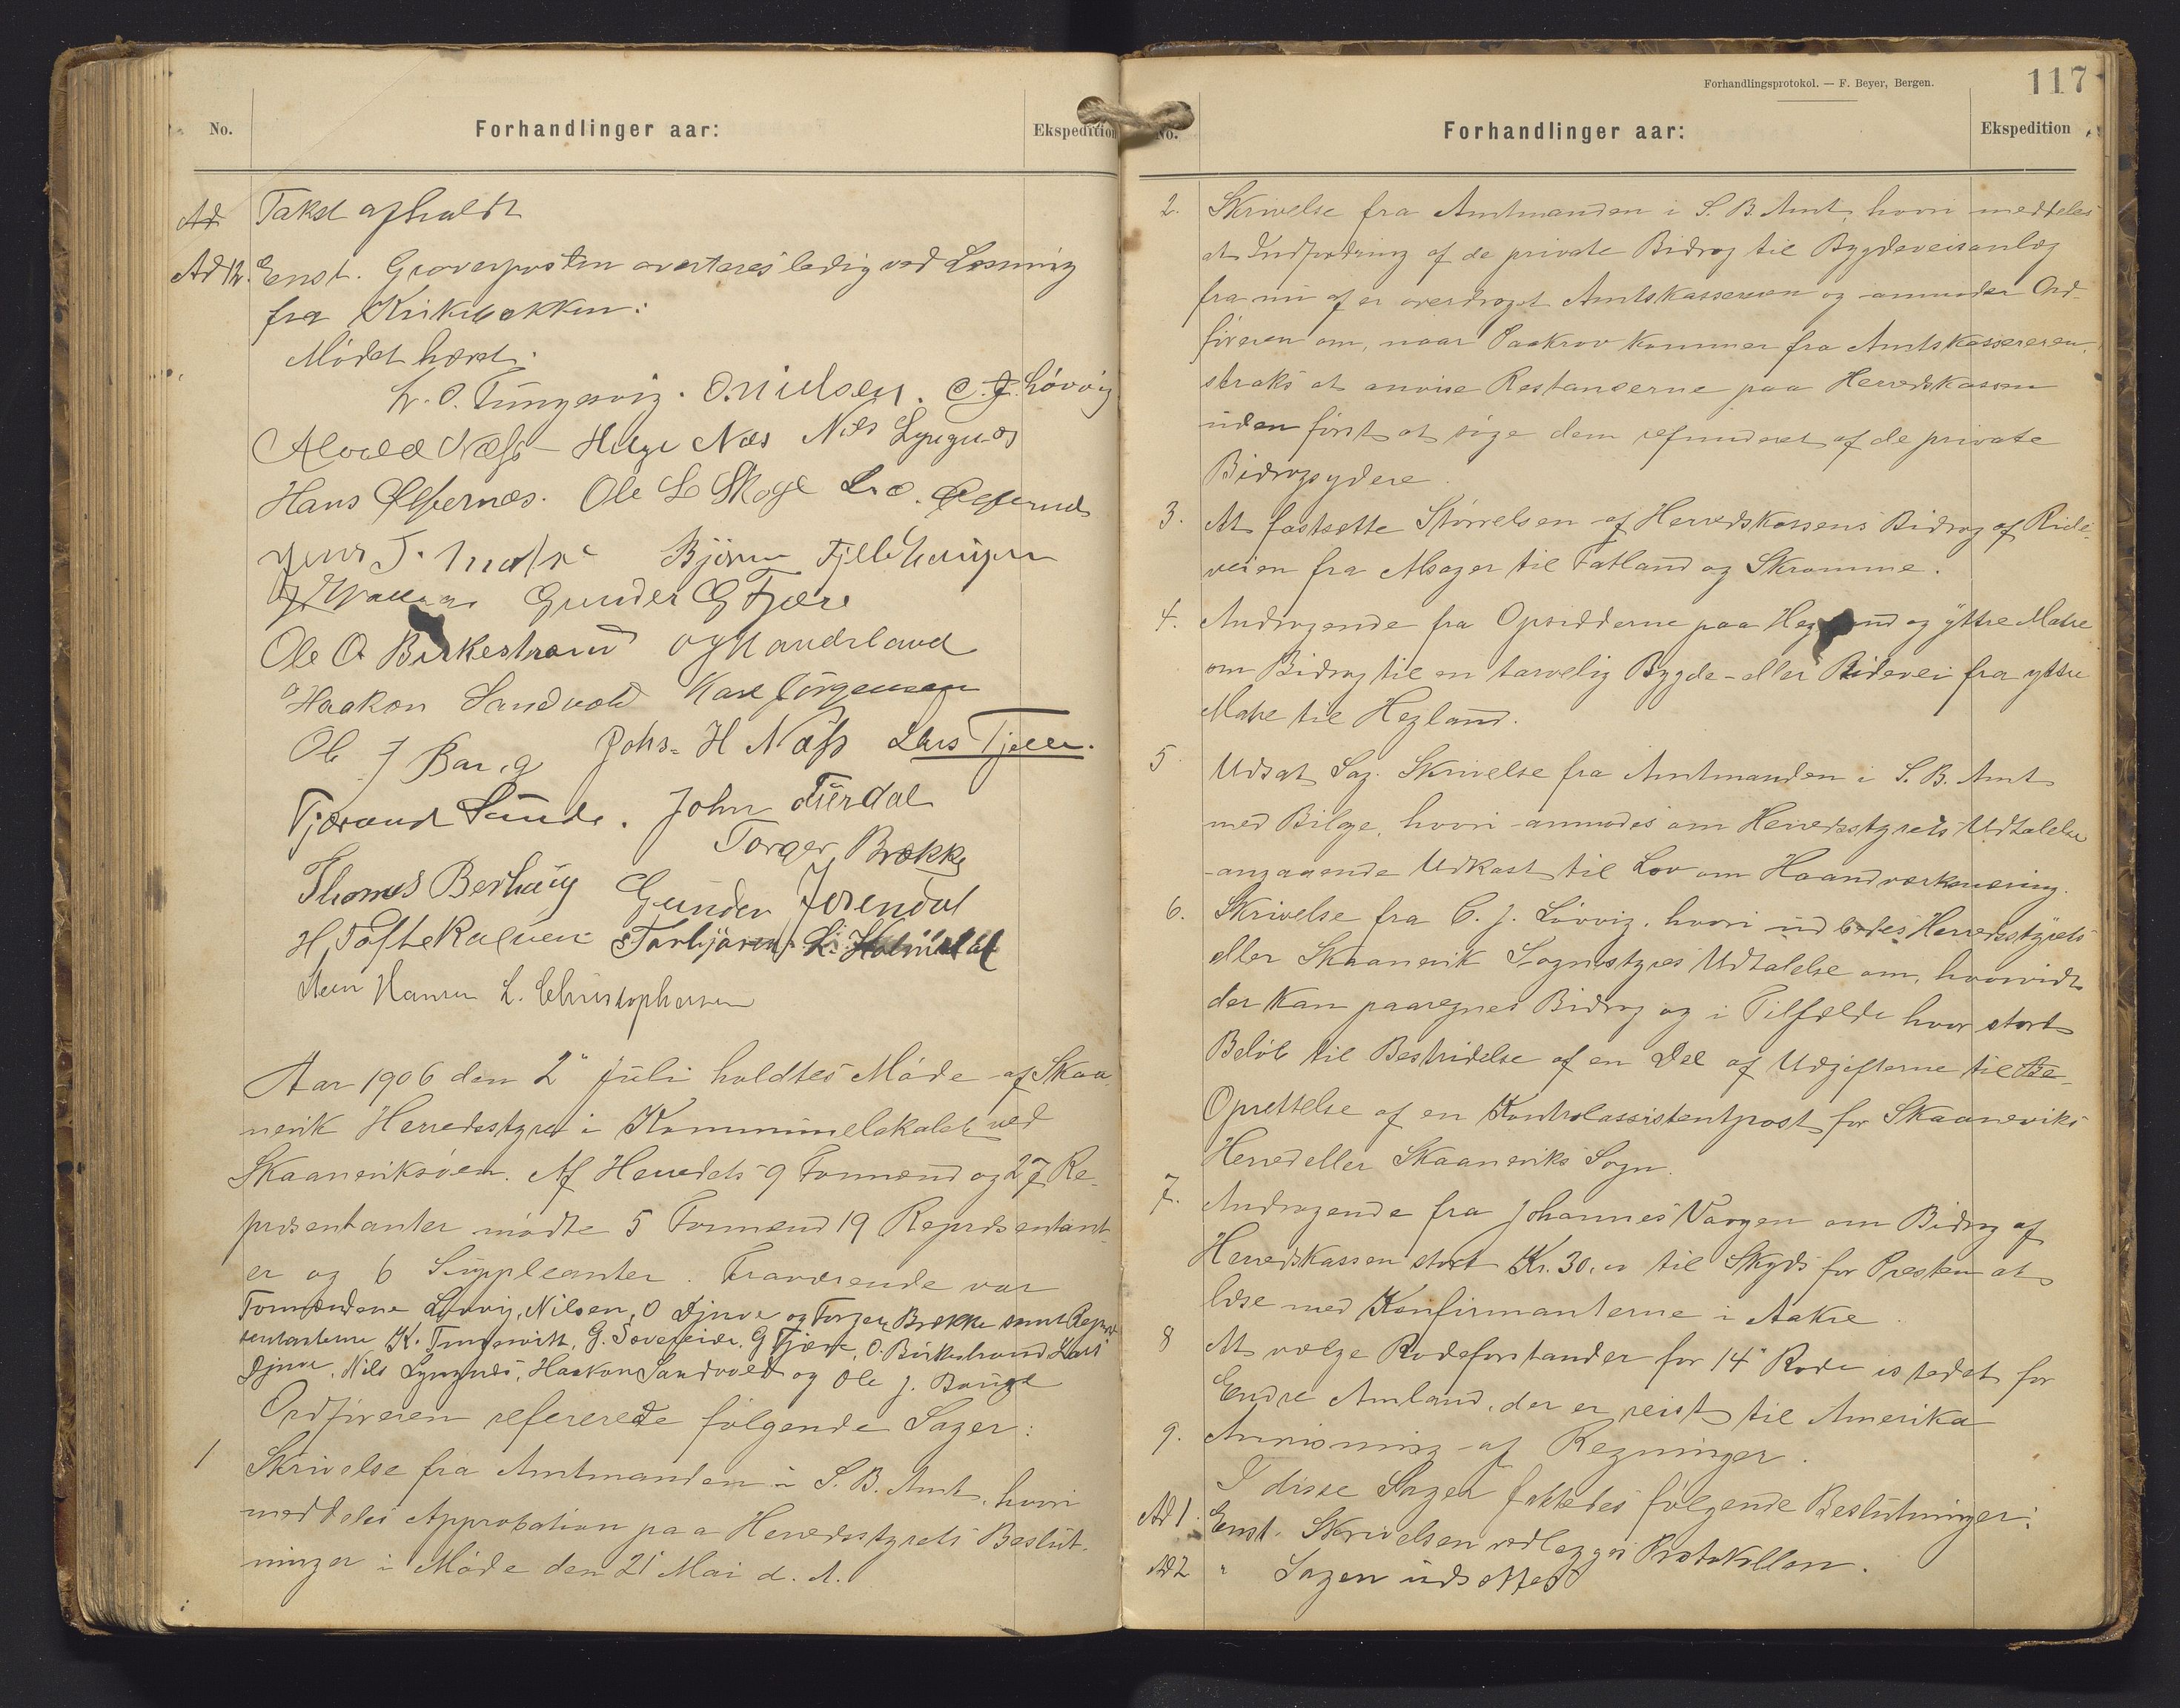 No.
Forhandlinger aar:
Ekspedition
Ad Takst afholdt
Ad 12. Enst. Graverposten averteres ledig ved Læsning
fra Kirkebakken.
Mødet hævet.
O. Nielsen. C. J. Løvvig
Næss Helge Næs Nils Lyngnæs
Hans Ølfernæs. Ole L Skoge L. O.
Jens J. Bjørn Fjellhaugen
Gunder G Fjære
Ole O Birkestrand
Haakon Sandvold Karl Jørgensen
Ole J Baug Johs. H Næss Lars Tjelle.
Tjærand Sunde. John Furdal
Torger Brække
Thomas Berhaug Gunder Jerendal
H. Toftekalven Torbjørn L. Holmedal
Steen Hansen L. Christophersen
Aar 1906 den 2 Juli holdtes Møde af Skaa-
nevik Herredsstyre i Kommunelokalet ved
Skaaneviksøen. Af Herredets 9 Formænd og 27 Re-
præsentanter mødte 5 Formænd 19 Repræsentant-
er og 6 Suppleanter. Fraværende var
Formændene Løvvig, Nilsen, O Djuve og Torger Brække samt Repræ-
sentanterne K. Tungesvik, G. Sævereide, G Fjære, O. Birkestrand Lars
Djuve, Nils Lyngnæs, Haakon Sandvold og Ole J. Bauge
Ordføreren refererede følgende Sager:
1 Skrivelse fra Amtmanden i S. B. Amt, hvori
meddeles Approbation paa Herredsstyrets Beslut-
ninger i Møde den 21 Mai d. A.
Forhandlingsprotokol. — F. Beyer, Bergen.
117
No.
Forhandlinger aar:
Ekspedition
2. Skrivelse fra Amtmanden i S. B. Amt, hvori meddeles
at Indfordring af de private Bidrag til Bygdeveisanlæg
fra nu af er overdraget Amtskassereren og anmoder Ord-
føreren om, naar Paakrav kommer fra Amtskassereren,
straks at anvise Restanserne paa Herredskassen
uden først at søge dem refunderet af de private
Bidragsydere.
3. At fastsætte Størrelsen af Herredskassens Bidrag af Ride-
veien fra Alsager til Fatland og Skromme.
4. Andragende fra Opsidderne paa Hegland og yttre Matre
om Bidrag til en tarvelig Bygde- eller Ridevei fra yttre
Matre til Hegland.
5. Udsat Sag. Skrivelse fra Amtmanden i S. B. Amt
med Bilage, hvori anmodes om Herredsstyrets Udtalelse
angaaende Udkast til Lov om Haandværksnæring.
6. Skrivelse fra C. J. Løvvig, hvori udbedes Herredsstyrets
eller Skaanevik Sognestyres Udtalelse om, hvorvidt
der kan paaregnes Bidrag og i Tilfælde hvor stort
Beløb til Bestridelse af en Del af Udgifterne til Be-
Oprettelse af en Kontrolassistentpost for Skaaneviks
Herred eller Skaaneviks Sogn.
7. Andragende fra Johannes Vaagen om Bidrag af
Herredskassen stort Kr. 30,00 til Skyds for Presten at
læse med Konfirmanterne i Aakre.
8 At vælge Rodeforstander for 14 Rode istedet for
Endre Amland, der er reist til Amerika
9. Anvisning af Regninger.
I disse Sager fattedes følgende Beslutninger:
Ad 1. Enst. Skrivelsen vedlægges Protokollen.
Ad 2 " Sagen udsættes